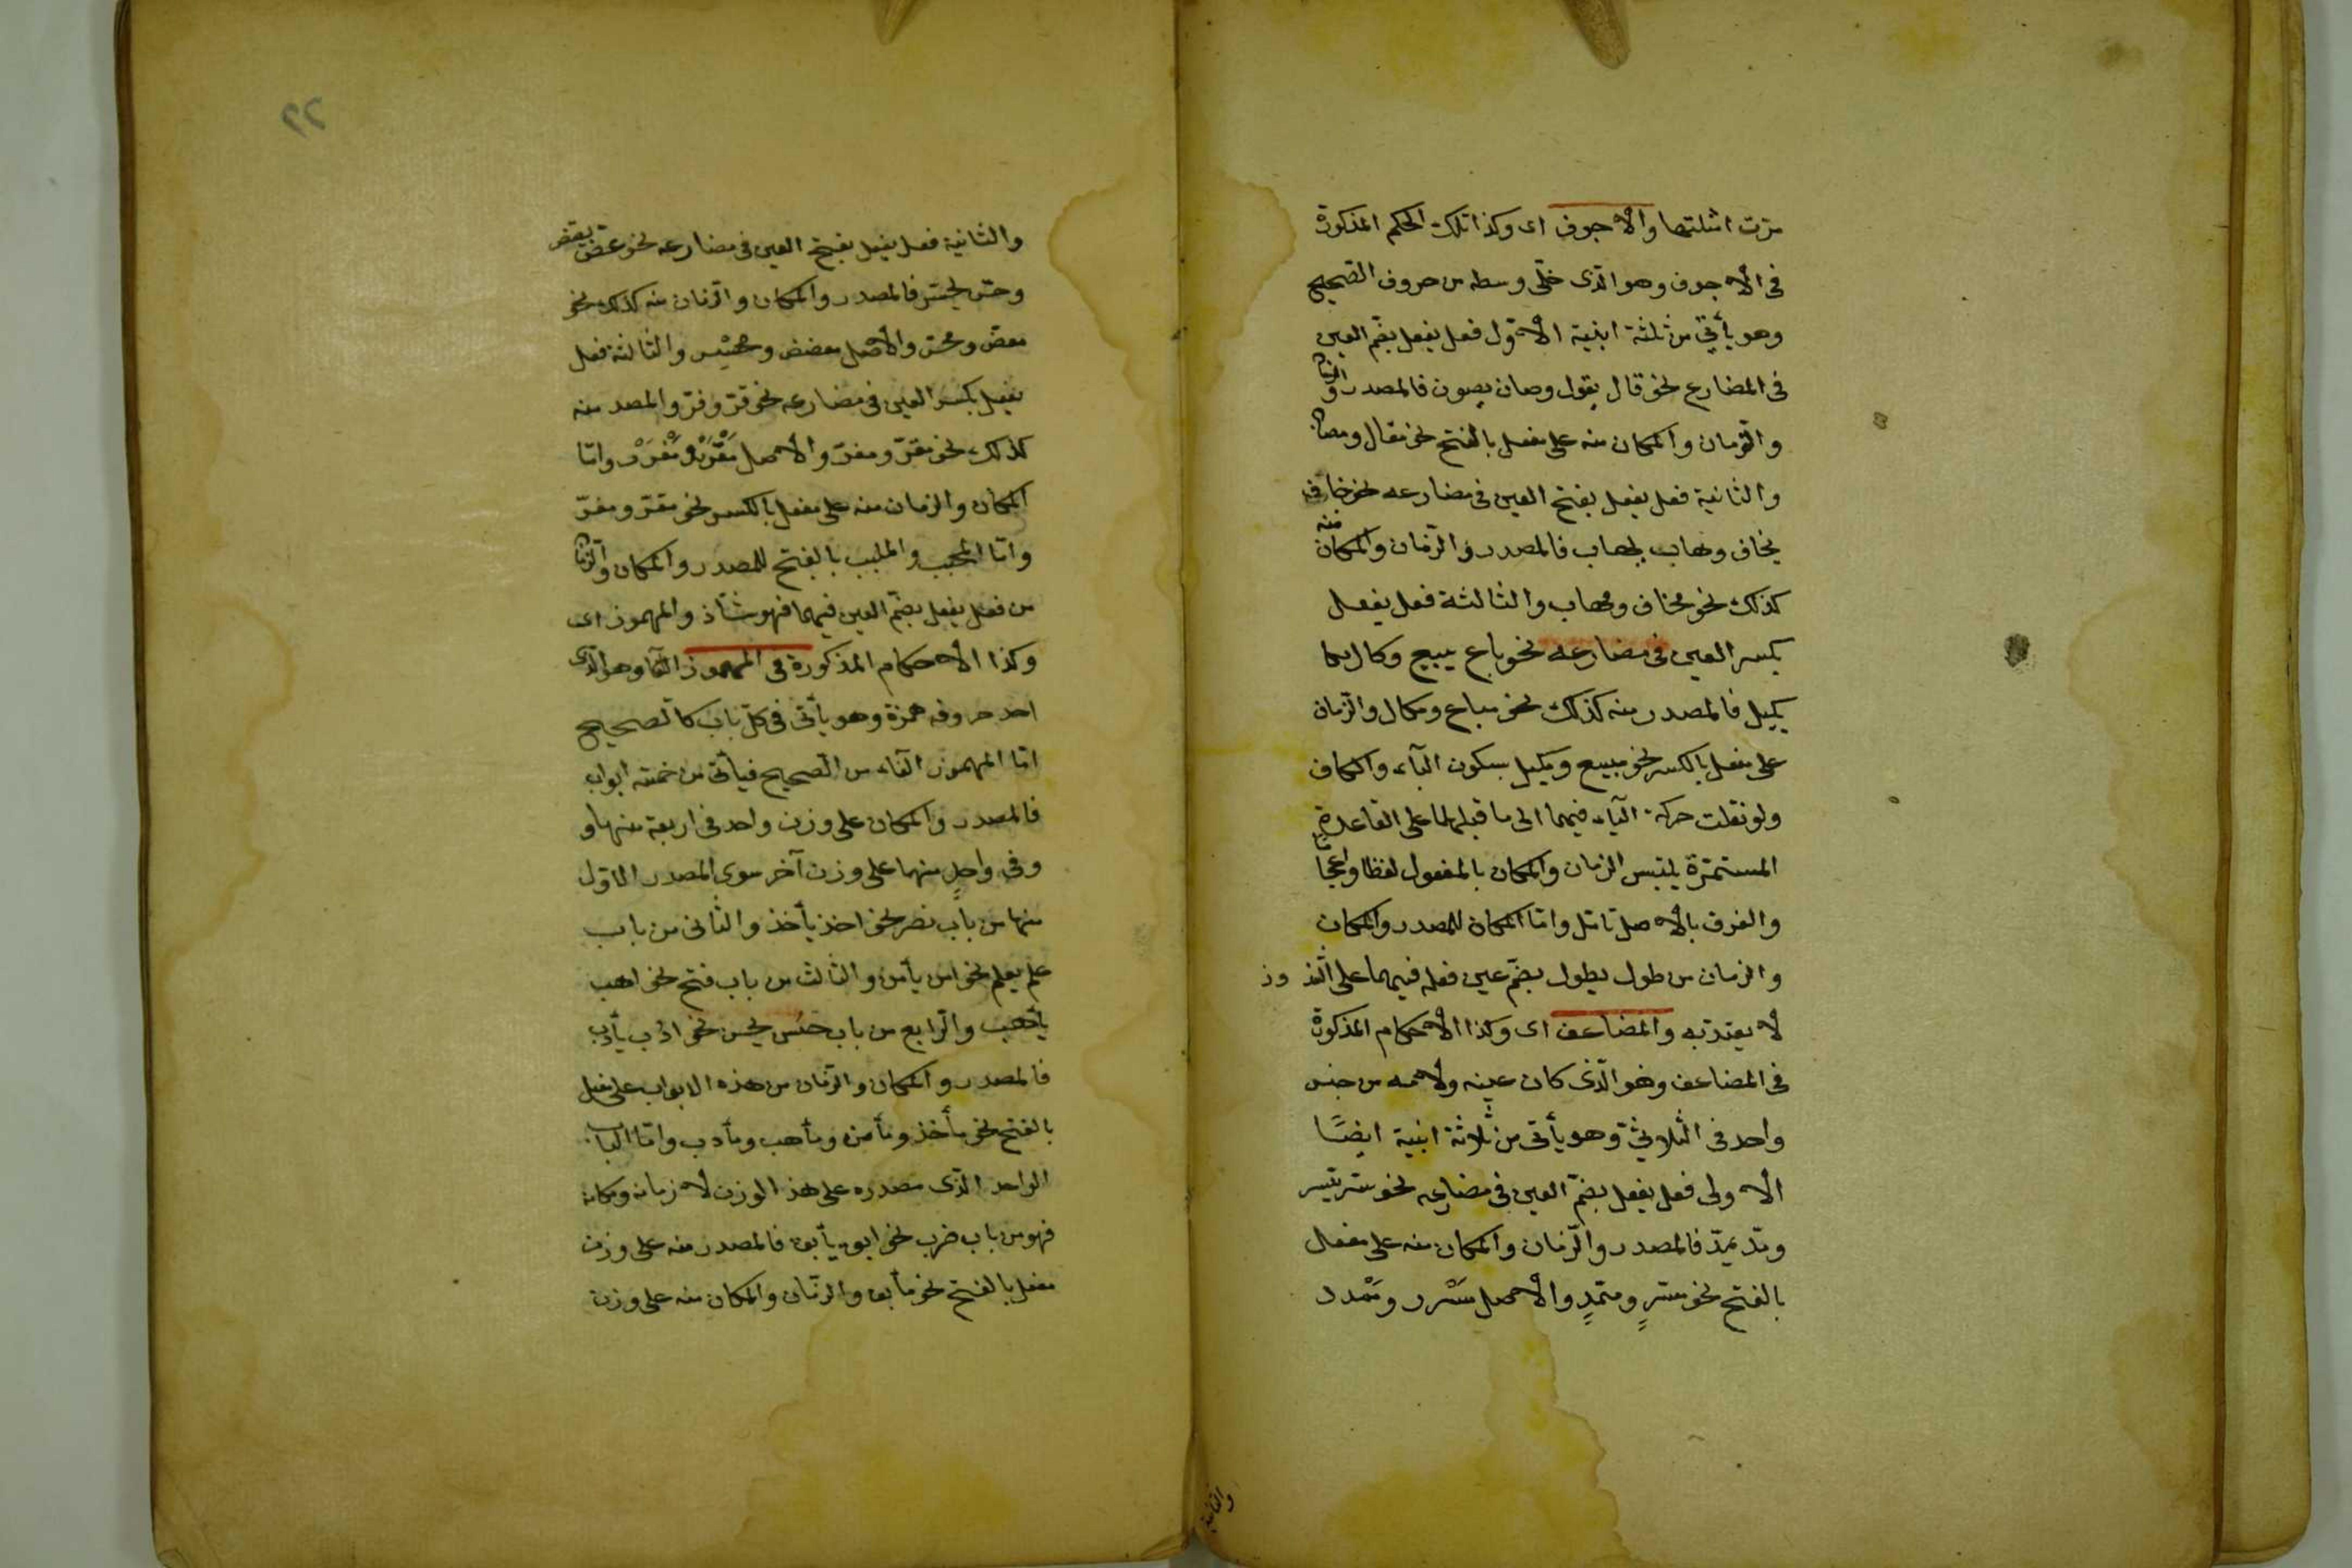 مرّت امثلتها والاجوف اى وكذا تلك الحكم المذكورة
فى الاجوف وهو الّذى خلى وسطه من حروف الصّحيح
وهو يأتى من ثلثة ابنية الاوّل فعل يفعل بضّم العين
فى المضارع نحو قال يقول وصان يصون فالمصدر
والزّمان والمكان منه على مفعل بالفتح نحو مقال ومصان
والثانية فعل يفعل بفتح العين فى مضارعه نحو خاف
يخاف وهاب يهاب فالمصدر والزّمان والمكان منه
كذلك نحو مخاف ومهاب والثالثة فعل يفعل
بكسر العين فى مضارعه نحو باع يبيع وكال
يكيل فالمصدر منه كذلك نحو مباع ومكال والزّمان
على مفعل بالكسر نحو مبيع ومكيل بسكون الباء والكاف
ولو نقلت حركة الياء فيهما الى ما قبلهما على القاعدة
المستمرّة يلتبس الزمان والمكان بالمفعول لفظا
والفرق بالاصل تامّل وامّا المكان للمصدر والمكان
والزمان من طول يطول بضّم عين فعله فيهما على الشذ وذ
لا يعتدّ به والمضاعف اى وكذا الاحكام المذكورة
فى المضاعف وهو الّذى كان عينه ولامه من جنس
واحد فى الثلاثىّ وهو يأتى من ثلاثة ابنية ايضًا
الاولى فعل يفعل بضمّ العين فى مضارعه نحو سرّ يسرّ
ومدّ يمدّ فالمصدر والزّمان والمكان منه على مفعل
بالفتح نحو مسرٍّ وممدٍّ والاصل مَسْرر ومَمْدد
والثانية
٢٢
والثانية فعل يفعل بفتح العين فى مضارعه نحو عضّ يعضّ
وحسّ يحسّ فالمصدر والمكان والزمان منه كذلك نحو
معضّ ومحسّ والاصل معضض ومحسس والثالثة فعل
يفعل بكسر العين فى مضارعه نحو قرّ وفرّ والمصد منه
كذلك نحو مقرّ ومفرّ والاصل مَقْرَرْ ومَفْرَرْ وامّا
المكان والزمان منه على مفعل بالكسر نحو مقرّ ومفرّ
وامّا المحبب والملبب بالفتح للمصدر والمكان والزمان
من فعل يفعل بضمّ العين فيهما فهو شاّذ والمهموز اى
وكذا الاحكام المذكورة فى المهموز الفاء وهو الّذى
احد حروفه همزة وهو يأتى فى كلّ باب كالصحيح
امّا المهموز الفاء من الصّحيح فيأتى من خمسة ابواب
فالمصدر والمكان على وزن واحد فى اربعة منها و
وفى واحدٍ منها على وزن آخر سوى المصدر الاوّل
منها من باب نصر نحو اخذ يأخذ والثانى من باب
علم يعلم نحو امن يأمن والثالث من باب فتح نحو اهب
يأهب والرّابع من باب حسُن يحسن نحو ادب يأدب
فالمصدر والمكان والزّمان من هذه الابواب على مفعل
بالفتح نحو مأخذ ومأمن ومأهب ومأدب وامّا الباب
الواحد الّذى مصدره على هذ الوزن لا زمانه ومكانه
فهو من باب ضرب نحو ابق يأبق فالمصدر منه على وزن
مفعل بالفتح نحو مأبق والزّمان والمكان منه على وزن